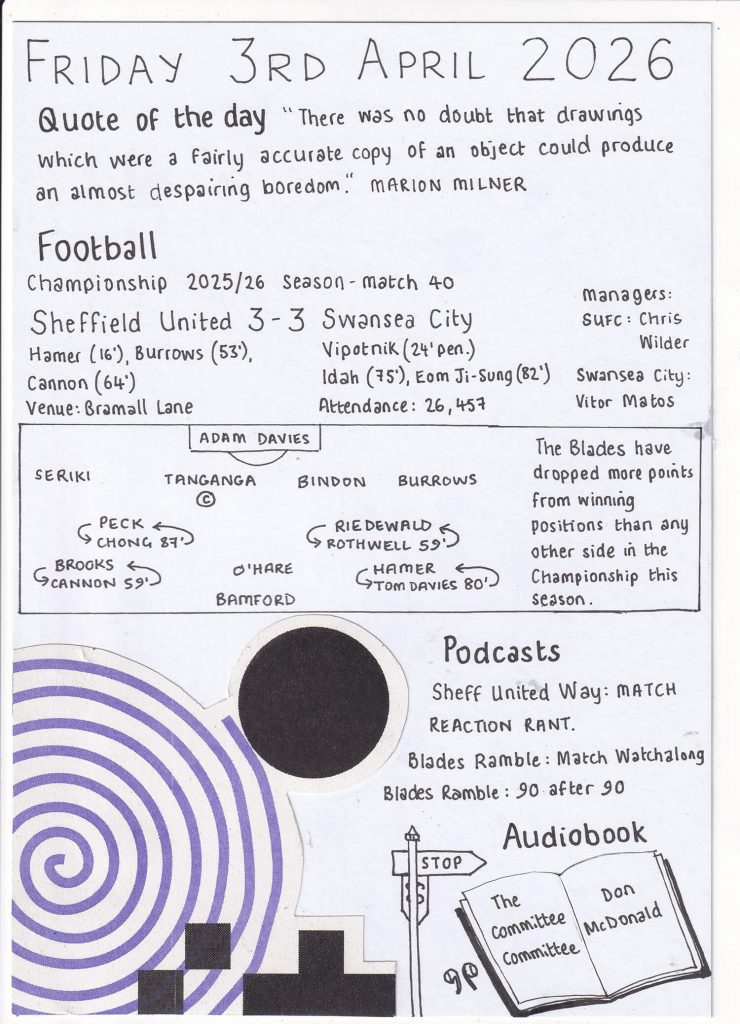 FRIDAY 3RD APRIL 2026
Quote of the day "There was no doubt that drawings
which were a fairly accurate copy of an object could produce
an almost despairing boredom." MARION MILNER
Football
Championship 2025/26 Season - match 40
Sheffield United 3-3 Swansea City
Hamer (16'), Burrows (53'),
Cannon (64')
Venue: Bramall Lane
Vipotnik (24' pen.)
Idah (75'), Eom Ji-Sung (82')
Attendance: 26,457
Managers:
SUFC: Chris
Wilder
Swansea City:
Vitor Matos
ADAM DAVIES
SERIKI TANGANGA BINDON BURROWS
©
PECK
CHONG 87'
RIEDEWALD
ROTHWELL 59'
BROOKS
CANNON 59'
O'HARE
HAMER
TOM DAVIES 80'
BAMFORD
The Blades have
dropped more points
from winning
positions than any
other side in the
Championship this
season.
Podcasts
Sheff United Way: MATCH
REACTION RANT.
Blades Ramble: Match Watchalong
Blades Ramble: 90 after 90
Audiobook
STOP
The
committee
committee
Don
McDonald